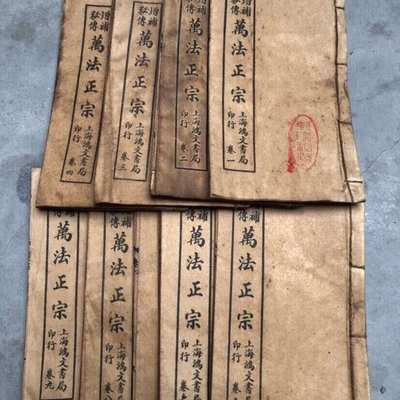 增補
秘傳
萬法正宗
上海鴻文書局
印行
卷一
增補
秘傳
萬法正宗
上海鴻文書局
印行
卷二
增補
秘傳
萬法正宗
上海鴻文書局
印行
卷三
增補
秘傳
萬法正宗
上海鴻文書局
印行
卷四
補
傳
萬法正宗
上海鴻文書局
印行
補
傳
萬法正宗
上海鴻文書局
印行
補
傳
萬法正宗
上海鴻文書局
印行
卷八
補
傳
萬法正宗
上海鴻文書局
印行
卷九